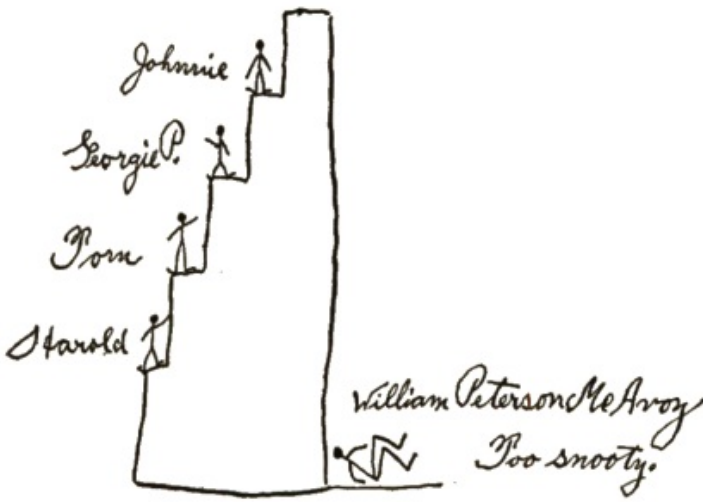 Johnnie
Georgie P.
Tom
Harold
William Peterson McAvoy
Too snooty.